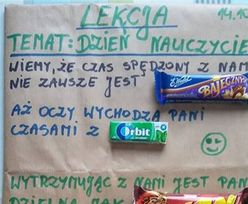 LEKCJA 14.
TEMAT: DZIEŃ NAUCZYCIE
WIEMY, ŻE CZAS SPĘDZONY Z NAM
NIE ZAWSZE JEST BAJECZNY
AŻ OCZY WYCHODZĄ PANI
CZASAMI Z Orbit
WYTRZYMUJĄC Z NAMI JEST PAN
DZIELNA JAK